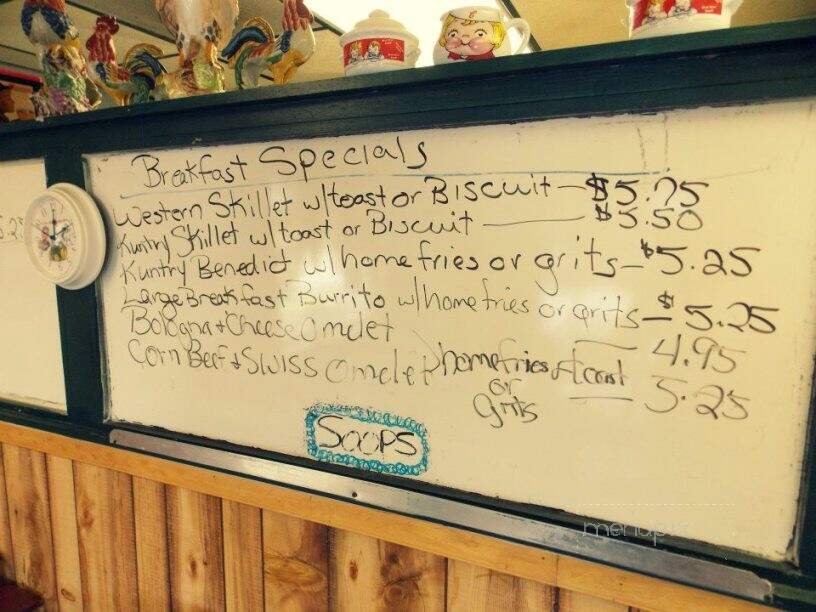 Breakfast Specials
Western Skillet w/toast or Biscuit — $5.75
Kuntry Skillet w/toast or Biscuit — $5.50
Kuntry Benedict w/homefries or grits — $5.25
Large Breakfast Burrito w/homefries or grits — $5.25
Bologna + Cheese Omelet — 4.95
Corn Beef + Swiss Omelet > homefries + toast — 5.25
or
grits
Soups